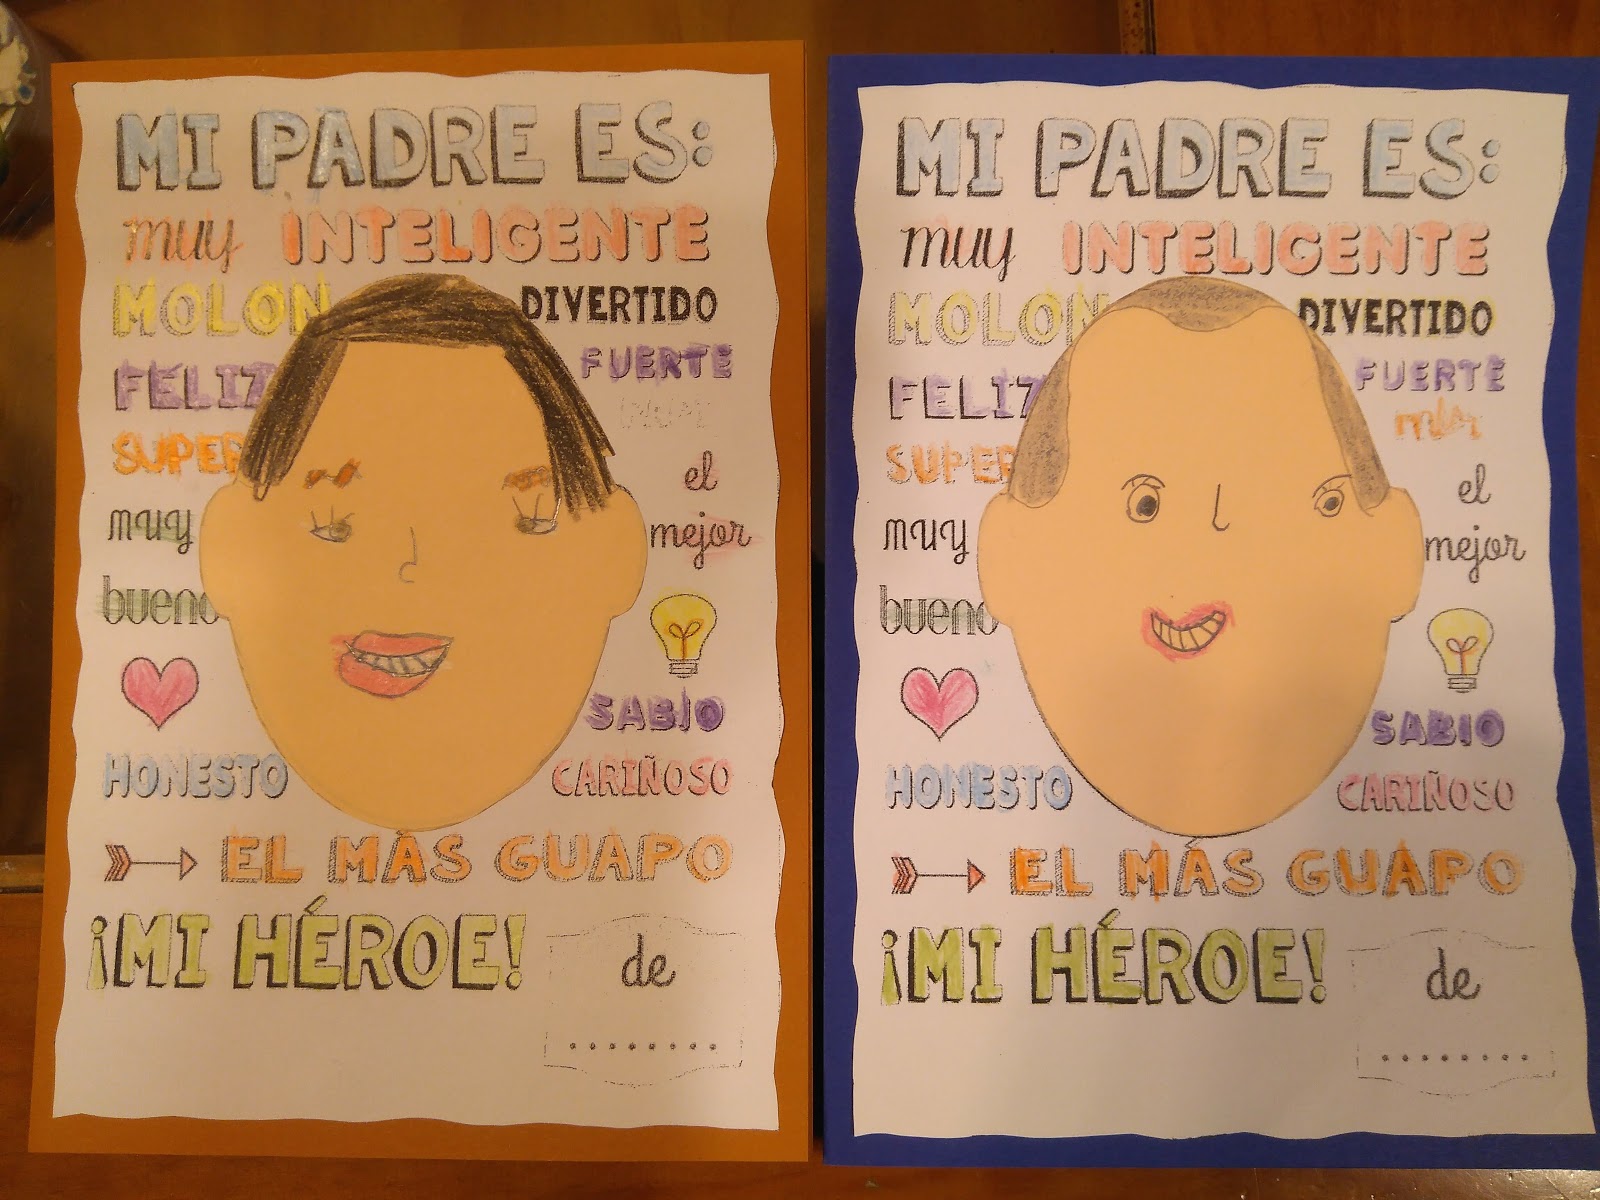 MI PADRE ES:
muy INTELIGENTE
MOLON DIVERTIDO
FELIZ FUERTE
SUPER
el
muy mejor
bueno
SABIO
HONESTO CARIÑOSO
EL MÁS GUAPO
¡MI HÉROE! de
MI PADRE ES:
muy INTELIGENTE
MOLON DIVERTIDO
FELIZ FUERTE
SUPER
el
muy mejor
bueno
SABIO
HONESTO CARIÑOSO
EL MÁS GUAPO
¡MI HÉROE! de